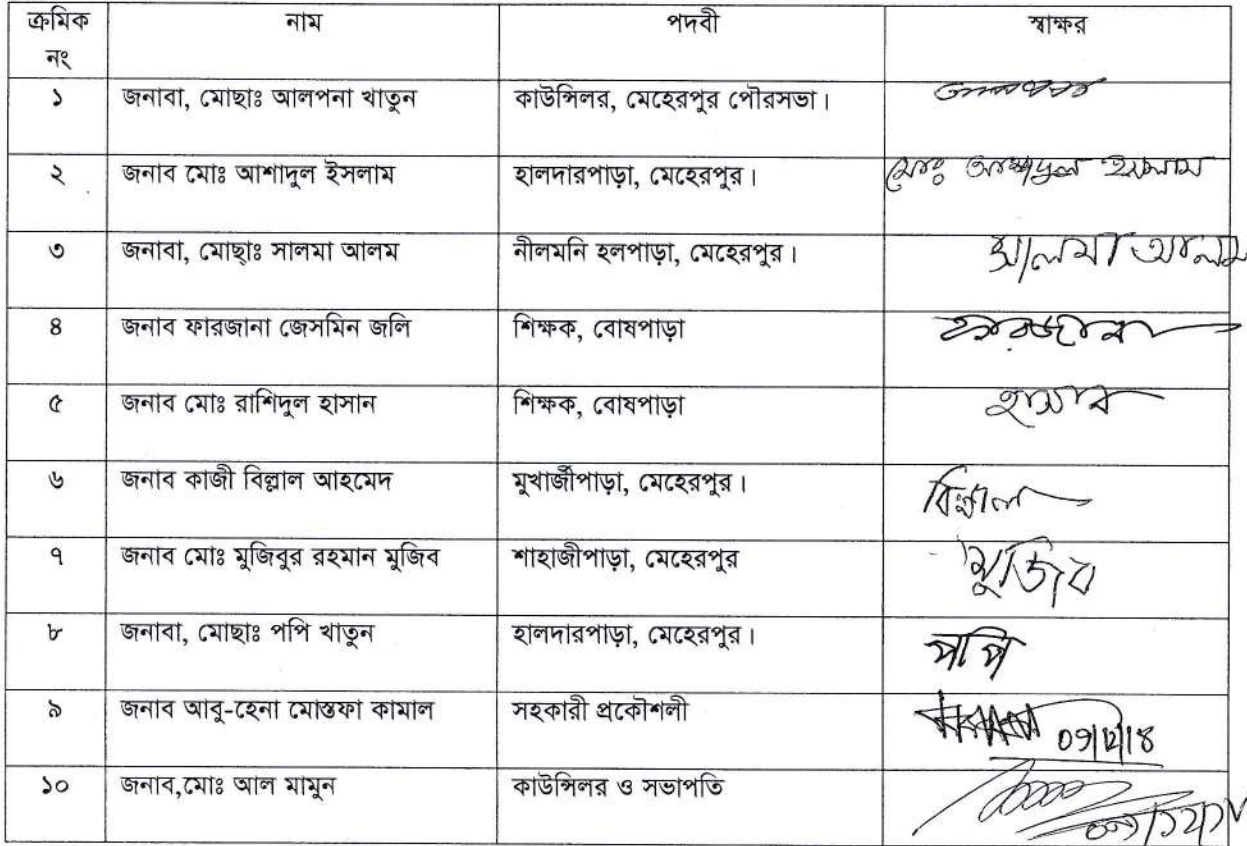 ক্রমিক নং নাম পদবী স্বাক্ষর
১ জনাবা, মোছাঃ আলপনা খাতুন কাউন্সিলর, মেহেরপুর পৌরসভা।
২ জনাব মোঃ আশাদুল ইসলাম হালদারপাড়া, মেহেরপুর। মোঃ আশাদুল ইসলাম
৩ জনাবা, মোছাঃ সালমা আলম নীলমনি হলপাড়া, মেহেরপুর। সালমা আলম
৪ জনাব ফারজানা জেসমিন জলি শিক্ষক, বোষপাড়া ফারজানা
৫ জনাব মোঃ রাশিদুল হাসান শিক্ষক, বোষপাড়া হাসান
৬ জনাব কাজী বিল্লাল আহমেদ মুখার্জীপাড়া, মেহেরপুর। বিল্লাল
৭ জনাব মোঃ মুজিবুর রহমান মুজিব শাহাজীপাড়া, মেহেরপুর মুজিব
৮ জনাবা, মোছাঃ পপি খাতুন হালদারপাড়া, মেহেরপুর। পপি
৯ জনাব আবু-হেনা মোস্তফা কামাল সহকারী প্রকৌশলী 09/12/18
১০ জনাব,মোঃ আল মামুন কাউন্সিলর ও সভাপতি